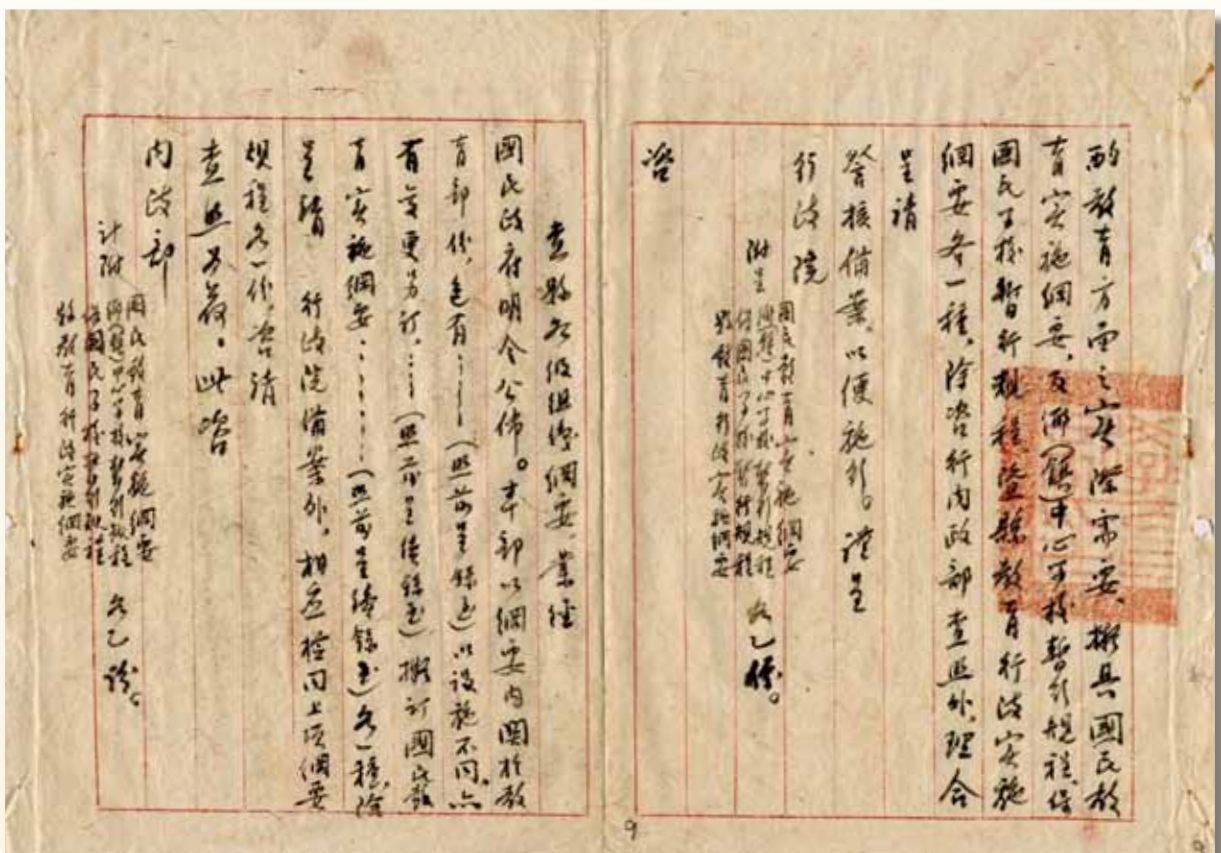 酌教育方面之实際需要、擬具國民教
育实施綱要、及鄉(鎮)中心学校暫行規程、保
國民学校暫行規程、暨縣教育行政实施
綱要各一種、除咨行内政部查照外、理合
呈請
鉴核備案、以便施行。謹呈
行政院
附呈
國民教育实施綱要
鄉(鎮)中心学校暫行規程
保國民学校暫行規程
縣教育行政实施綱要
各乙份。
咨
查縣各级组织綱要、業经
國民政府明令公佈。本部以綱要内關於教
育部份、(照前呈録至)以設施不同。六
有变更另訂、(照前呈接録至)擬訂國民教
育实施綱要(照前呈接録至)各一種、除
呈請 行政院備案外、相应檢同上项綱要
規程各一份、咨請
查照为荷。此咨
内政部
計附
國民教育实施綱要
鄉(鎮)中心学校暫行規程
保國民学校暫行規程
縣教育行政实施綱要
各乙份。
9